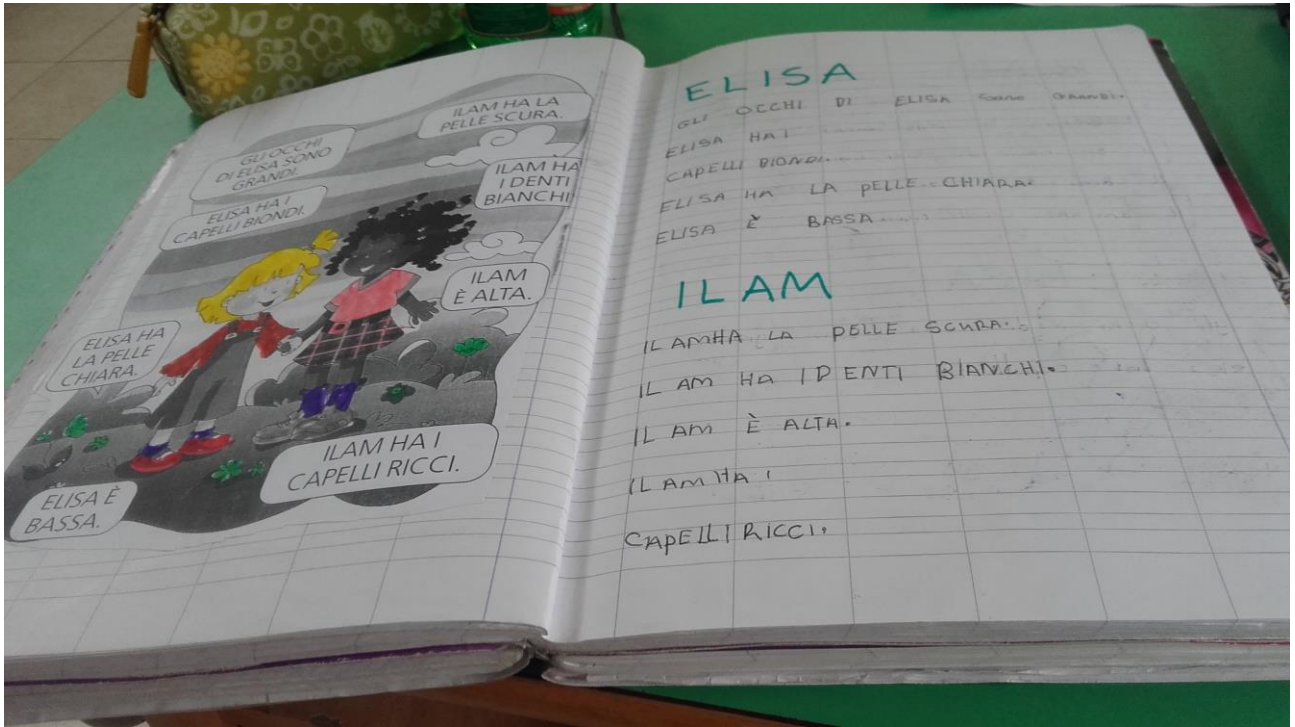 ILAM HA LA
PELLE SCURA.
GLI OCCHI
DI ELISA SONO
GRANDI.
ILAM HA
I DENTI
BIANCHI
ELISA HA I
CAPELLI BIONDI.
ILAM
È ALTA.
ELISA HA
LA PELLE
CHIARA.
ILAM HA I
CAPELLI RICCI.
ELISA È
BASSA.
ELISA
GLI OCCHI DI ELISA SONO GRANDI.
ELISA HA I
CAPELLI BIONDI.
ELISA HA LA PELLE CHIARA.
ELISA È BASSA
ILAM
ILAMHA LA PELLE SCURA.
ILAM HA IDENTI BIANCHI.
ILAM È ALTA.
ILAM HA I
CAPELLI RICCI.